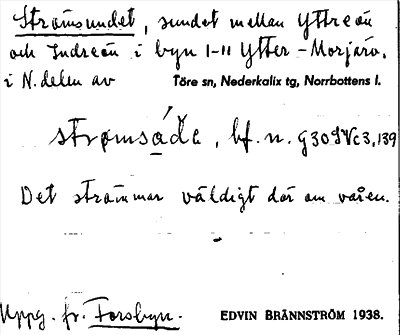 Strömsundet, sundet mellan Yttreön
och Indreön i byn 1-11 Ytter-Morjärv.
i N. delen av Töre sn, Nederkalix tg, Norrbottens l.
strømsáde, bf. n. G30 SVc3,139
Det strömmar väldigt där om våren.
Uppg. fr. Forsbyn. EDVIN BRÄNNSTRÖM 1938.